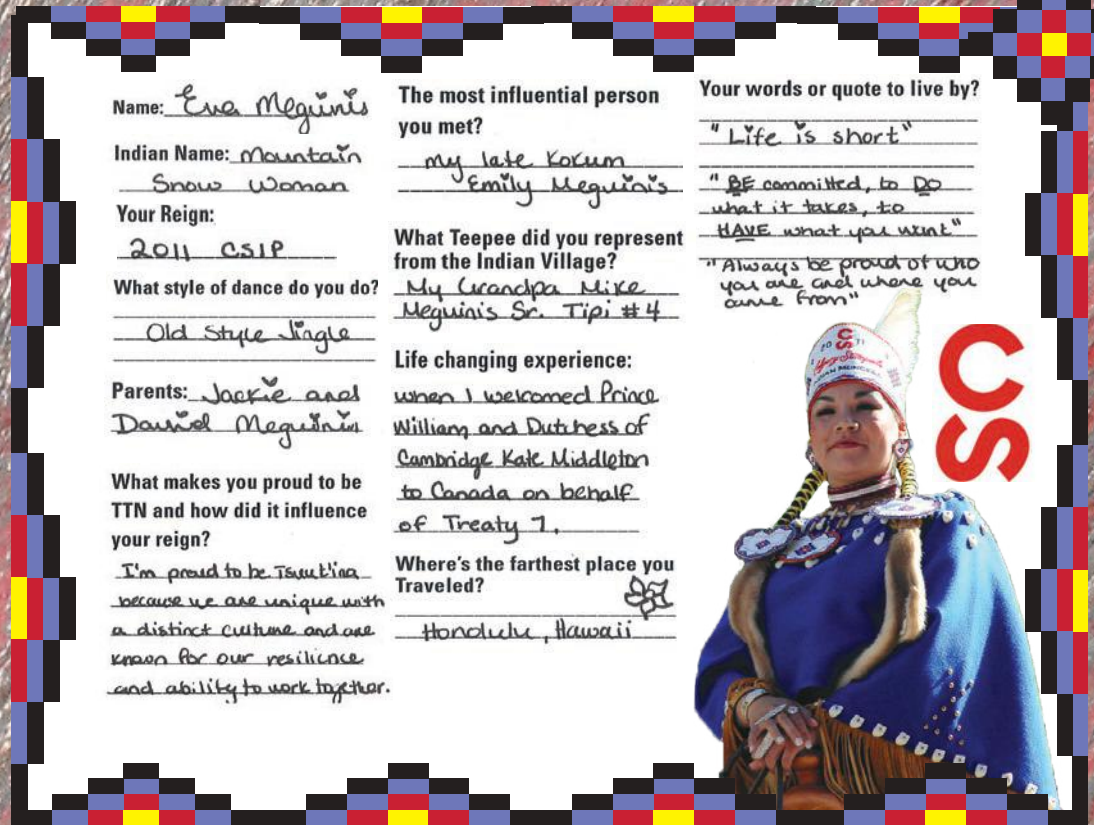 Name: Eva Meguinis
Indian Name: Mountain
Snow Woman
Your Reign:
2011 CSIP
What style of dance do you do?
Old Style Jingle
Parents: Jackie and
David Meguinis
What makes you proud to be
TTN and how did it influence
your reign?
I'm proud to be Tsuut'ina
because we are unique with
a distinct culture and are
known for our resilience
and ability to work together.
The most influential person
you met?
my late Kokum
Emily Meguinis
What Teepee did you represent
from the Indian Village?
My Grandpa Mike
Meguinis Sr. Tipi #4
Life changing experience:
when I welcomed Prince
William and Dutchess of
Cambridge Kate Middleton
to Canada on behalf
of Treaty 7.
Where's the farthest place you
Traveled?
Honolulu, Hawaii
Your words or quote to live by?
"Life is short"
"BE committed, to DO
what it takes, to
HAVE what you want"
"Always be proud of who
you are and where you
came from"
CS
20 CS 11
Calgary Stampede
INDIAN PRINCESS